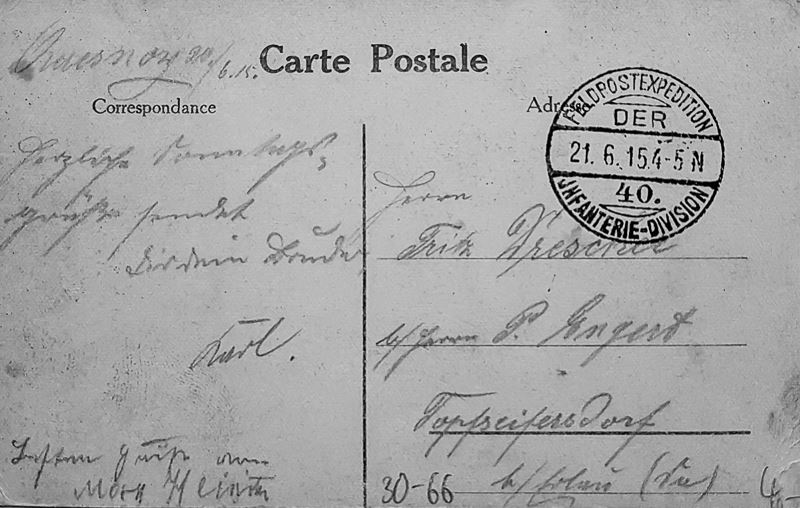 Quesnoy 20/6.15.
Carte Postale
Correspondance
Adresse
FELDPOSTEXPEDITION
DER
21. 6. 15 4-5 N
40.
JNFANTERIE-DIVISION
Herzliche Sonntags-
grüße sendet
Dir dein Bruder
Karl.
Besten Gruß von
Max
Herrn
Fritz Drescher
b/Herrn P. Engert
Topfseifersdorf
b/Erlau (Sa)
30-66